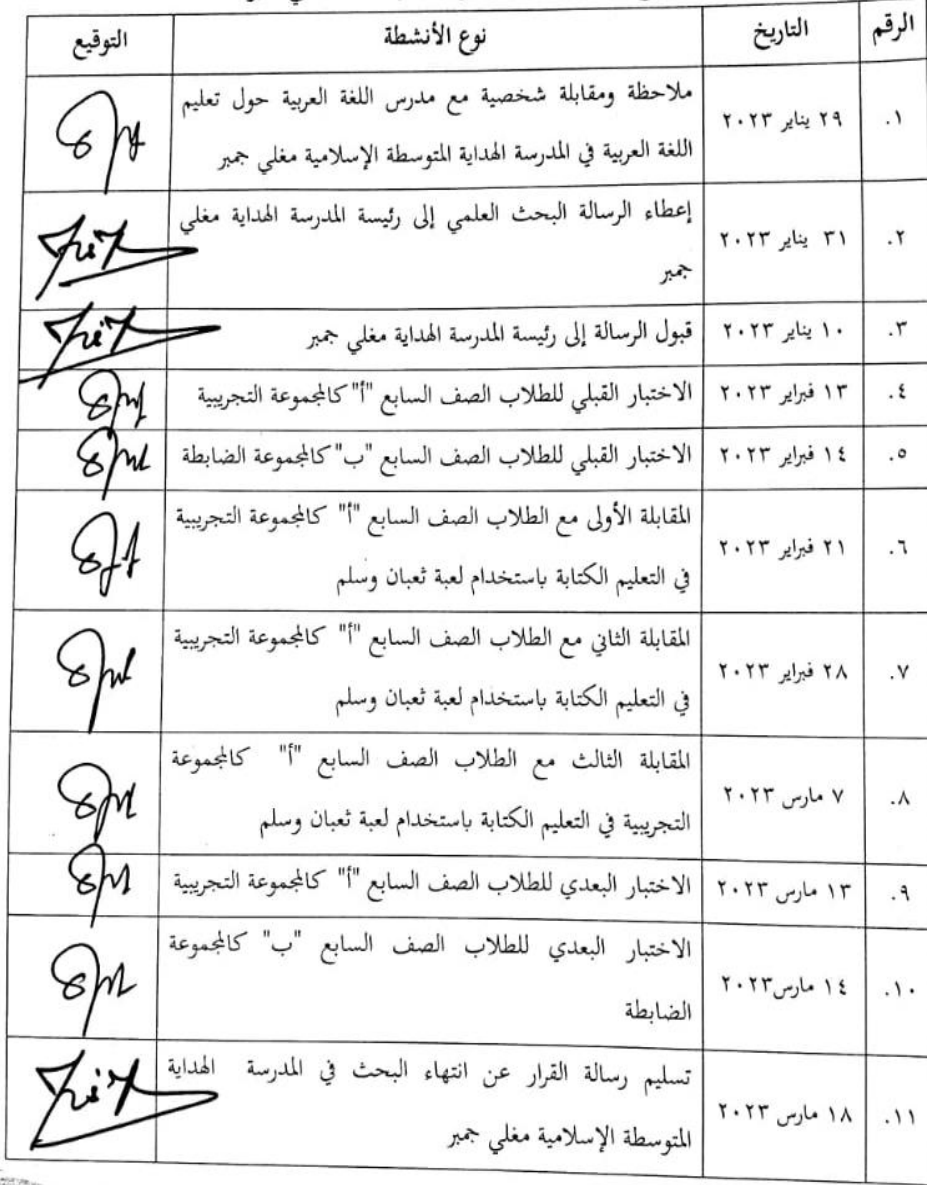 الرقم التاريخ نوع الأنشطة التوقيع
١. ٢٩ يناير ٢٠٢٣ ملاحظة ومقابلة شخصية مع مدرس اللغة العربية حول تعليم
اللغة العربية في المدرسة الهداية المتوسطة الإسلامية مغلي جمبر
٢. ٣١ يناير ٢٠٢٣ إعطاء الرسالة البحث العلمي إلى رئيسة المدرسة الهداية مغلي
جمبر
٣. ١٠ يناير ٢٠٢٣ قبول الرسالة إلى رئيسة المدرسة الهداية مغلي جمبر
٤. ١٣ فبراير ٢٠٢٣ الاختبار القبلي للطلاب الصف السابع "أ" كالمجموعة التجريبية
٥. ١٤ فبراير ٢٠٢٣ الاختبار القبلي للطلاب الصف السابع "ب" كالمجموعة الضابطة
٦. ٢١ فبراير ٢٠٢٣ المقابلة الأولى مع الطلاب الصف السابع "أ" كالمجموعة التجريبية
في التعليم الكتابة باستخدام لعبة ثعبان وسلم
٧. ٢٨ فبراير ٢٠٢٣ المقابلة الثاني مع الطلاب الصف السابع "أ" كالمجموعة التجريبية
في التعليم الكتابة باستخدام لعبة ثعبان وسلم
٨. ٧ مارس ٢٠٢٣ المقابلة الثالث مع الطلاب الصف السابع "أ" كالمجموعة
التجريبية في التعليم الكتابة باستخدام لعبة ثعبان وسلم
٩. ١٣ مارس ٢٠٢٣ الاختبار البعدي للطلاب الصف السابع "أ" كالمجموعة التجريبية
١٠. ١٤ مارس٢٠٢٣ الاختبار البعدي للطلاب الصف السابع "ب" كالمجموعة
الضابطة
١١. ١٨ مارس ٢٠٢٣ تسليم رسالة القرار عن انتهاء البحث في المدرسة الهداية
المتوسطة الإسلامية مغلي جمبر